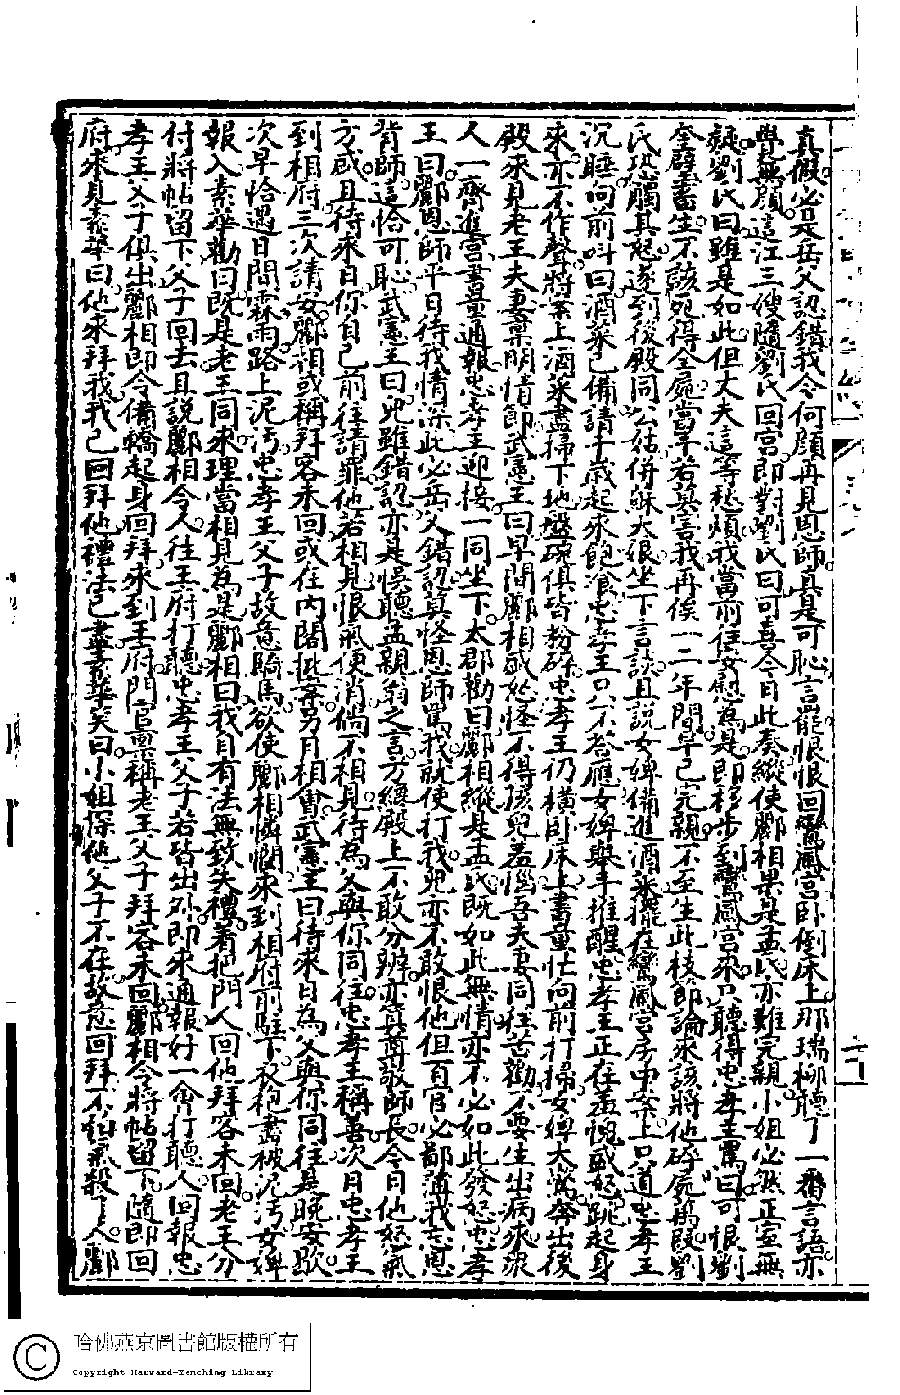 真假必是岳父認錯我今何顏再見恩師真是可恥言罷恨恨回鸞鳳宮卧倒床上那瑞柳聽了一番言語亦
覺無顏這江三嫂隨劉氏回宮即對劉氏曰可喜今日此奏縱使酈相果是孟氏亦難完親小姐必然正室無
疑劉氏曰雖是如此但丈夫這等愁煩我當前往安慰為是即移步到鸞鳳宮來只聽得忠孝王罵曰可恨劉
奎璧畜生不該死得全屍當年若無害我再俟一二年間早已完親不至生此枝節論來該將他碎屍萬段劉
氏恐觸其怒遂到後殿同公姑併蘇大娘坐下言談且說女婢備進酒菜擺在鸞鳳宮房中案上只道忠孝王
沉睡向前叫曰酒菜已備請千歲起來飽飡忠孝王只不荅應女婢舉手推醒忠孝王正在羞愧盛怒跳起身
來亦不作聲將案上酒菜盡掃下地盤碗俱皆粉碎忠孝王仍橫卧床上書童忙向前打掃女婢大驚奔出後
殿來見老王夫妻稟明情節武憲王曰早間酈相威怒怪不得孩兒羞惱吾夫妻同往苦勸不要生出病來衆
人一齊進宮書童通報忠孝王迎接一同坐下太郡勸曰酈相縱是孟氏既如此無情亦不必如此發怒忠孝
王曰酈恩師平日待我情深此必岳父錯認莫怪恩師罵我就使打我兒亦不敢恨他但百官必鄙薄我忘恩
背師這恰可恥武憲王曰兒雖錯認亦是悞聽孟親翁之言方纔殿上不敢分辨亦真尊敬師長今日他怒氣
方盛且待來日你自己前往請罪他若相見恨氣便消倘不相見待為父與你同往忠孝王稱善次日忠孝王
到相府三次請安酈相或稱拜客未回或在內閣抵幕另月相會武憲王曰待來日為父與你同往是晚安歇
次早恰遇日間霖雨路上泥汚忠孝王父子故意騎馬欲使酈相憐憫來到相府前駐下衣袍盡被泥汚女婢
報入素華勸曰既是老王同來理當相見為是酈相曰我自有法無致失禮着把門人回他拜客未回老王分
付將帖留下父子回去且說酈相令人往王府打聽忠孝王父子若皆出外即來通報好一會打聽人回報忠
孝王父子俱出酈相即令備轎起身回拜來到王府門官稟稱老王父子拜客未回酈相令將帖留下隨即回
府來見素華曰他來拜我我已回拜他禮法已盡素華笑曰小姐探他父子不在故意回拜不怕氣殺了人酈
哈佛燕京圖書館版權所有
Copyright Harvard-Yenching Library